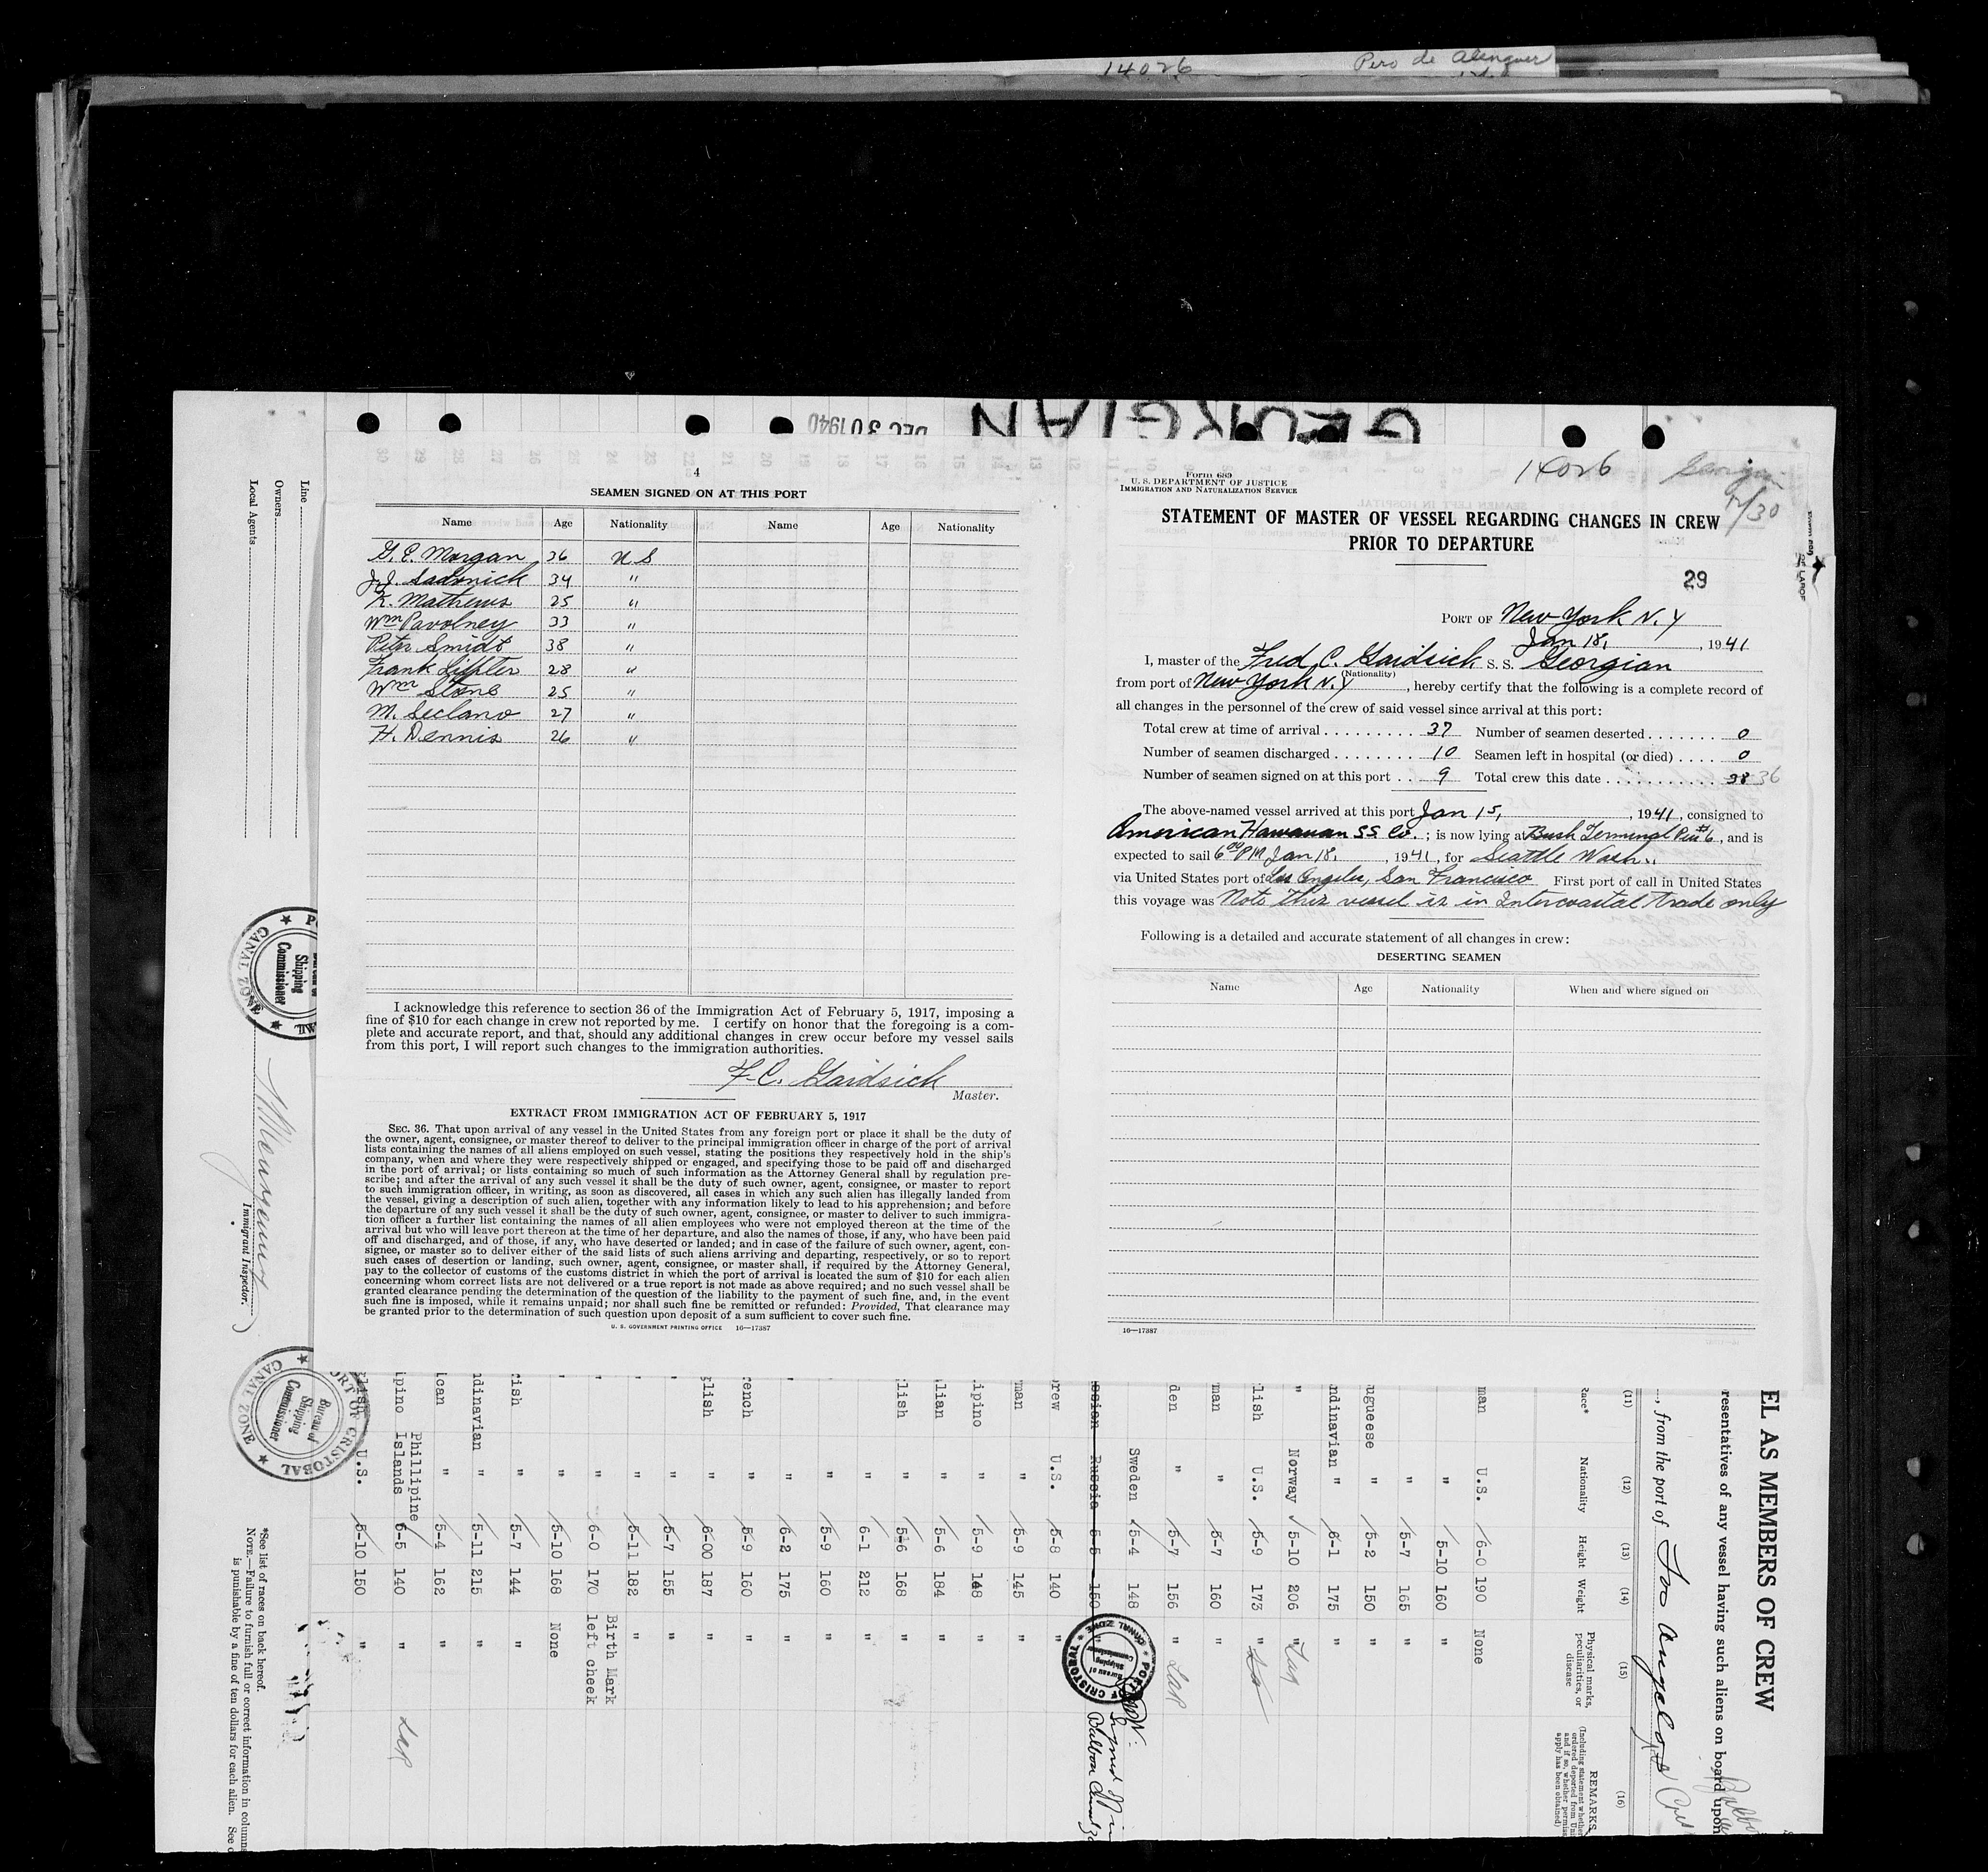 14026 Pero de Alenquer
GEORGIAN
DEC 30 1940
4
SEAMEN SIGNED ON AT THIS PORT
Name Age Nationality Name Age Nationality
G. E. Morgan 36 U S
J. J. Sadonick 34 "
K. Mathews 25 "
Wm Pavolney 33 "
Peter Smidt 38 "
Frank 28 "
Wm Stone 25 "
M. Seclano 27 "
H. Dennis 26 "
I acknowledge this reference to section 36 of the Immigration Act of February 5, 1917, imposing a
fine of $10 for each change in crew not reported by me. I certify on honor that the foregoing is a com-
plete and accurate report, and that, should any additional changes in crew occur before my vessel sails
from this port, I will report such changes to the immigration authorities.
F. C. Gaidsick
Master.
EXTRACT FROM IMMIGRATION ACT OF FEBRUARY 5, 1917
SEC. 36. That upon arrival of any vessel in the United States from any foreign port or place it shall be the duty of
the owner, agent, consignee, or master thereof to deliver to the principal immigration officer in charge of the port of arrival
lists containing the names of all aliens employed on such vessel, stating the positions they respectively hold in the ship's
company, when and where they were respectively shipped or engaged, and specifying those to be paid off and discharged
in the port of arrival; or lists containing so much of such information as the Attorney General shall by regulation pre-
scribe; and after the arrival of any such vessel it shall be the duty of such owner, agent, consignee, or master to report
to such immigration officer, in writing, as soon as discovered, all cases in which any such alien has illegally landed from
the vessel, giving a description of such alien, together with any information likely to lead to his apprehension; and before
the departure of any such vessel it shall be the duty of such owner, agent, consignee, or master to deliver to such immigra-
tion officer a further list containing the names of all alien employees who were not employed thereon at the time of the
arrival but who will leave port thereon at the time of her departure, and also the names of those, if any, who have been paid
off and discharged, and of those, if any, who have deserted or landed; and in case of the failure of such owner, agent, con-
signee, or master so to deliver either of the said lists of such aliens arriving and departing, respectively, or so to report
such cases of desertion or landing, such owner, agent, consignee, or master shall, if required by the Attorney General,
pay to the collector of customs of the customs district in which the port of arrival is located the sum of $10 for each alien
concerning whom correct lists are not delivered or a true report is not made as above required; and no such vessel shall be
granted clearance pending the determination of the question of the liability to the payment of such fine, and, in the event
such fine is imposed, while it remains unpaid; nor shall such fine be remitted or refunded: Provided, That clearance may
be granted prior to the determination of such question upon deposit of a sum sufficient to cover such fine.
U. S. GOVERNMENT PRINTING OFFICE 16—17387
Form 689
U. S. DEPARTMENT OF JUSTICE
IMMIGRATION AND NATURALIZATION SERVICE
14026 Georgian
12/30
STATEMENT OF MASTER OF VESSEL REGARDING CHANGES IN CREW
PRIOR TO DEPARTURE
29
PORT OF New York N. Y
Jan 18, , 1941
I, master of the Fred C. Gaidsick S. S. Georgian
(Nationality)
from port of New York N. Y , hereby certify that the following is a complete record of
all changes in the personnel of the crew of said vessel since arrival at this port:
Total crew at time of arrival . . . . . . . . . 37 Number of seamen deserted . . . . . . . 0
Number of seamen discharged . . . . . . . . 10 Seamen left in hospital (or died) . . . . 0
Number of seamen signed on at this port . . 9 Total crew this date . . . . . . . . . . . 38 36
The above-named vessel arrived at this port Jan 15, , 1941, consigned to
American Hawaiian SS Co. ; is now lying at Bush Terminal Pier #6, and is
expected to sail 6 00 PM Jan 18, , 1941, for Seattle Wash.
via United States port of Los Angeles, San Francisco First port of call in United States
this voyage was Note this vessel is in Intercoastal trade only
Following is a detailed and accurate statement of all changes in crew:
DESERTING SEAMEN
Name Age Nationality When and where signed on
16—17387
Line
Owners
Local Agents
Immigrant Inspector.
PORT OF CRISTOBAL
Bureau of
Shipping
Commissioner
CANAL ZONE
EL AS MEMBERS OF CREW
resentatives of any vessel having such aliens on board upon
, from the port of Los Angeles
(11) (12) (13) (14) (15) (16)
Race* Nationality Height Weight Physical marks, peculiarities, or disease REMARKS
man U.S. 6-0 190 None
" 5-10 160 "
" 5-7 165 "
ugueese " 5-2 150 "
ndinavian " 6-1 175 "
" Norway 5-10 206 "
lish U.S. 5-9 173 "
man " 5-7 160 "
den " 5-7 156 " LAR
Sweden 5-4 148
ssian Russia 5-5 150 "
brew U.S. 5-8 140 "
man " 5-9 145 "
ipino " 5-9 148 "
lian " 5-6 184 "
lish " 5-6 168 "
" 6-1 212 "
" 5-9 160 "
" 6-2 175 "
rench " 5-9 160 "
glish " 6-00 187 "
" " 5-7 155 "
" " 5-11 182 "
" " 6-0 170 Birth Mark left cheek
" " 5-10 168 None
rish " 5-7 144 "
dinavian " 5-11 215 "
ican " 5-4 162 "
ipino Phillipine Islands 5-5 140 " LAR
glish U.S. 5-10 150 "
*See list of races on back hereof.
NOTE.—Failure to furnish full or correct information in columns
is punishable by a fine of ten dollars for each alien. See